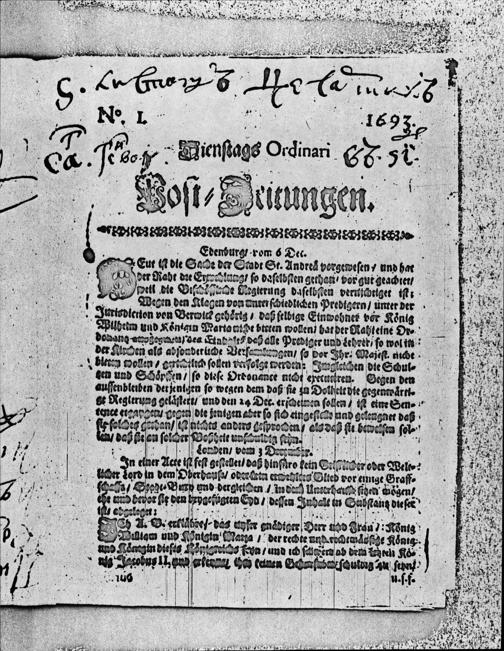 No. I.
1693.
Dienstags Ordinari
Post-Zeitungen.
Edenburg/ vom 6 Dec.
Eut ist die Sache der Stadt St. Andreä vorgewesen/ und hat
der Raht die Erwehlung/ so daselbsten gethan/ vor gut geachtet/
weil die Bischöffliche Regierung daselbsten vernichtiget ist;
Wegen den Klagen von unterschiedlichen Predigern/ unter der
Jurisdiction von Berwic gehörig/ daß selbige Einwohner vor König
Wilhelm und Königin Maria nicht bitten wollen/ hat der Raht eine Or-
donantz daß alle Prediger und Lehrer/ so wol in
der Kirchen als absonderliche Versamlungen/ so vor Ihr. Majest. nicht
bitten wollen/ gerichtlich sollen verfolget werden: Imgleichen die Schul-
tzen und Schöpffen/ so diese Ordonance nicht executiren. Gegen den
aussenbleiben derjenigen so wegen dem daß sie zu die gegenwärti-
ge Regierung gelästert/ und den 24 Dec. erscheinen sollen/ ist eine Sen-
tence ergangen/ gegen die jenigen aber so sich eingestelt und geleugnet daß
sie solches gethan/ ist nichts anders gesprochen/ als daß sie beweisen sol-
len/ daß sie an solcher Boßheit unschuldig seyn.
Londen/ vom 3 Dezember.
In einer Acte ist fest gestellet/ daß hinfüro kein Geistlicher oder Welt-
licher Lord in dem Oberhause/ oder ein Glied vor einige Graff-
schafft/ und dergleichen/ in dem Unterhause sitzen mögen/
ehe und bevor sie den beygefügten Eyd/ dessen Inhalt in Substantz dieser
ist/ abgeleget:
Ich A. B. erklähre/ das unser gnädiger Herr und Frau/ König
William und Königin Marya/ der rechte und rechtmässige König
und Königin dieses Königreichs seyn/ und ich schwere ab dem letzten Kö-
nig Jacobus II. und erkenne/ ihm keinen Gehorsam schuldig zu seyn/
u.s.f.